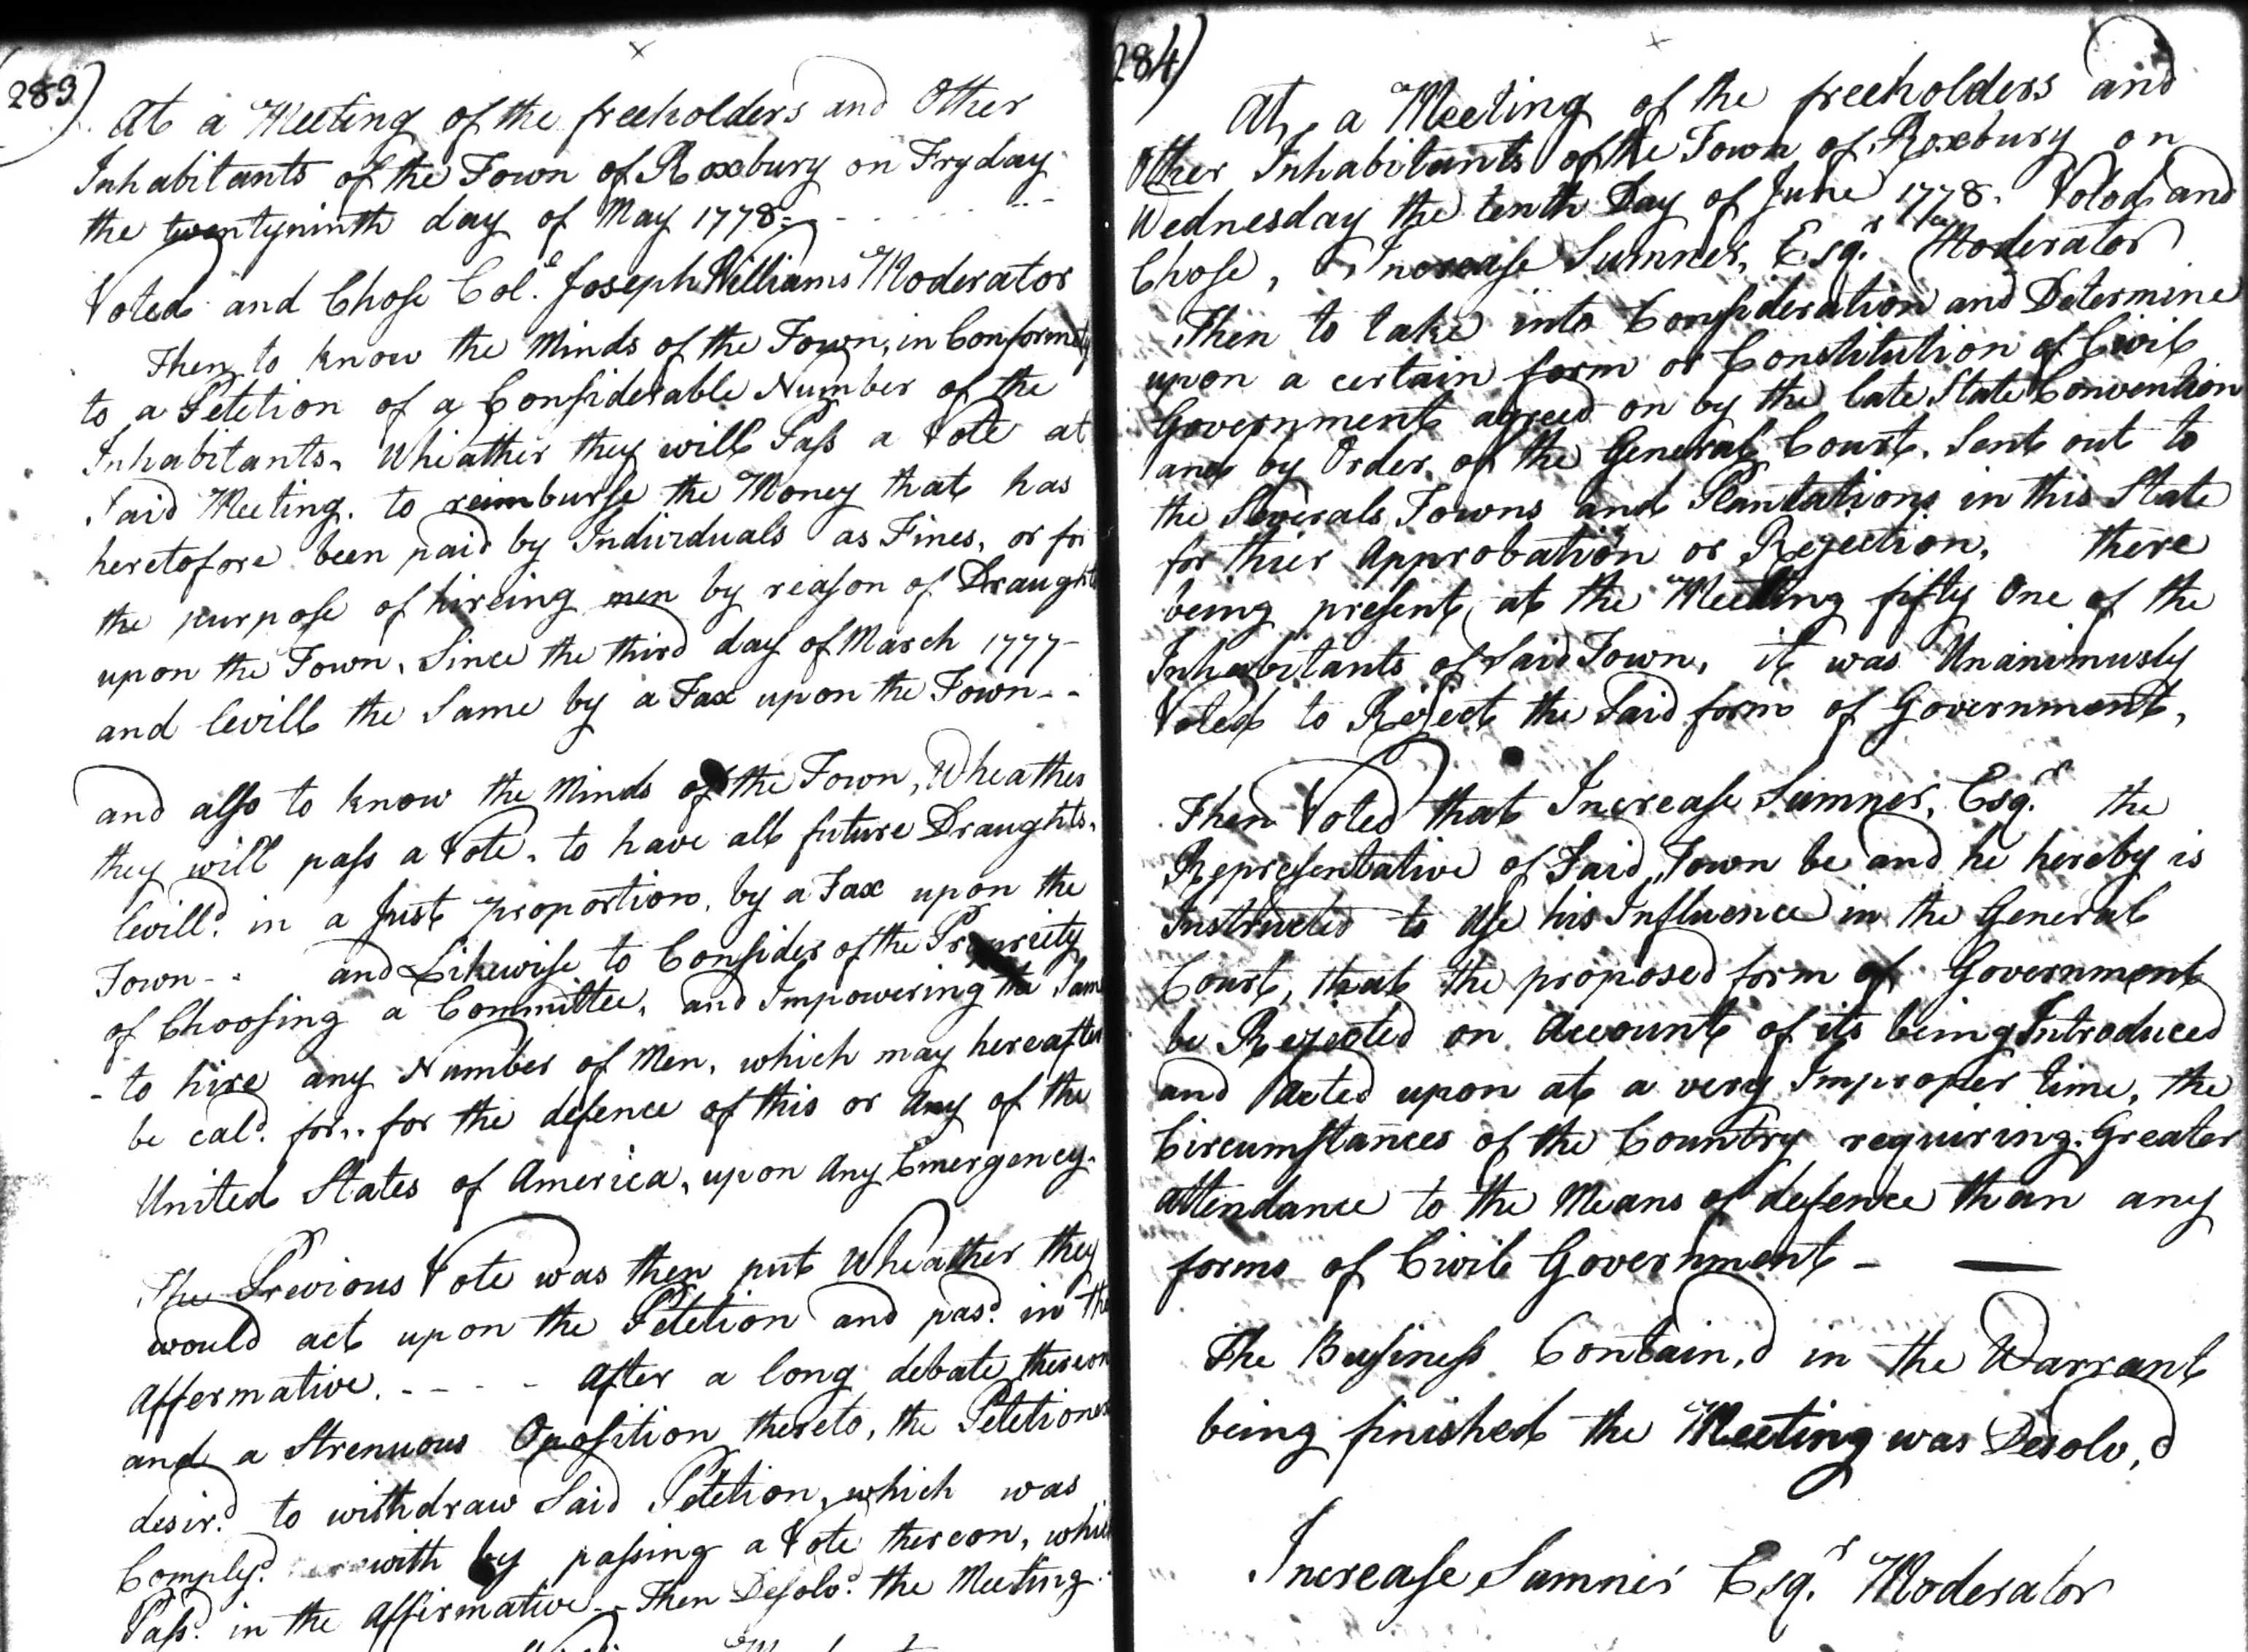 283)
At a Meeting of the freeholders and Other
Inhabitants of the Town of Roxbury on Fryday
the twentyninth day of May 1778-
Voted and Chose Col.º Joseph Williams Moderator
Then to know the Minds of the Town, in Conformity
to a Petetion of a Considerable Number of the
Inhabitants, Wheather they will Pass a Vote at
Said Meeting. to reimburse the Money that has
heretofore been paid by Individuals as Fines, or for
the purpose of hireing men by reason of Draughts
upon the Town, Since the third day of March 1777-
and levill the Same by a Tax upon the Town - -
and also to know the Minds of the Town, Wheather
they will pass a Vote, to have all future Draughts,
levill.d in a Just proportion, by a Tax upon the
Town - - and Likewise to Consider of the
of Choosing a Committee, and Impowering the Same
- to hire any Number of Men, which may hereafter
be cal.d for,. for the defence of this or Any of the
United States of America, upon Any Emergency.
The Previous Vote was then put Wheather they
would act upon the Petetion and pas.d in the
affermative. - - - - After a long debate thereon
and a Strenuous Oposition thereto, the Petetioners
desir.d to withdraw Said Petetion, which was
Comply.d with by passing a Vote thereon, which
Pass.d in the Affirmative - Then Desolv.d the Meeting.
284)
At a Meeting of the freeholders and
Other Inhabitants of the Town of Roxbury on
Wednesday the tenth Day of June 1778. Voted and
Chose, Increase Sumner, Esq.r Moderator
Then to take into Consideration and Determine
upon a certain form or Constitution of Civil
Government agreed on by the late State Convention
and by Order of the General Court, Sent out to
the Severals Towns and Plantations in this State
for thier Approbation or Rejection, there
being present, at the Meeting fifty One of the
Inhabitants of Said Town, it was Unanimusly
Voted to Reject the Said form of Government,
Then Voted that Increase Sumner, Esq.r the
Representative of Said Town be and he hereby is
Instructed to Use his Influence in the General
Court, that the proposed form of Government
be Rejected on Account of its being Introduced
and Acted upon at a very Improper time, the
Circumstances of the Country requiring Greater
attendance to the Means of defence than any
forms of Civil Government -
The Business Contain,d in the Warrant
being finished the Meeting was Desolv,d
Increase Sumner Esq.r Moderator